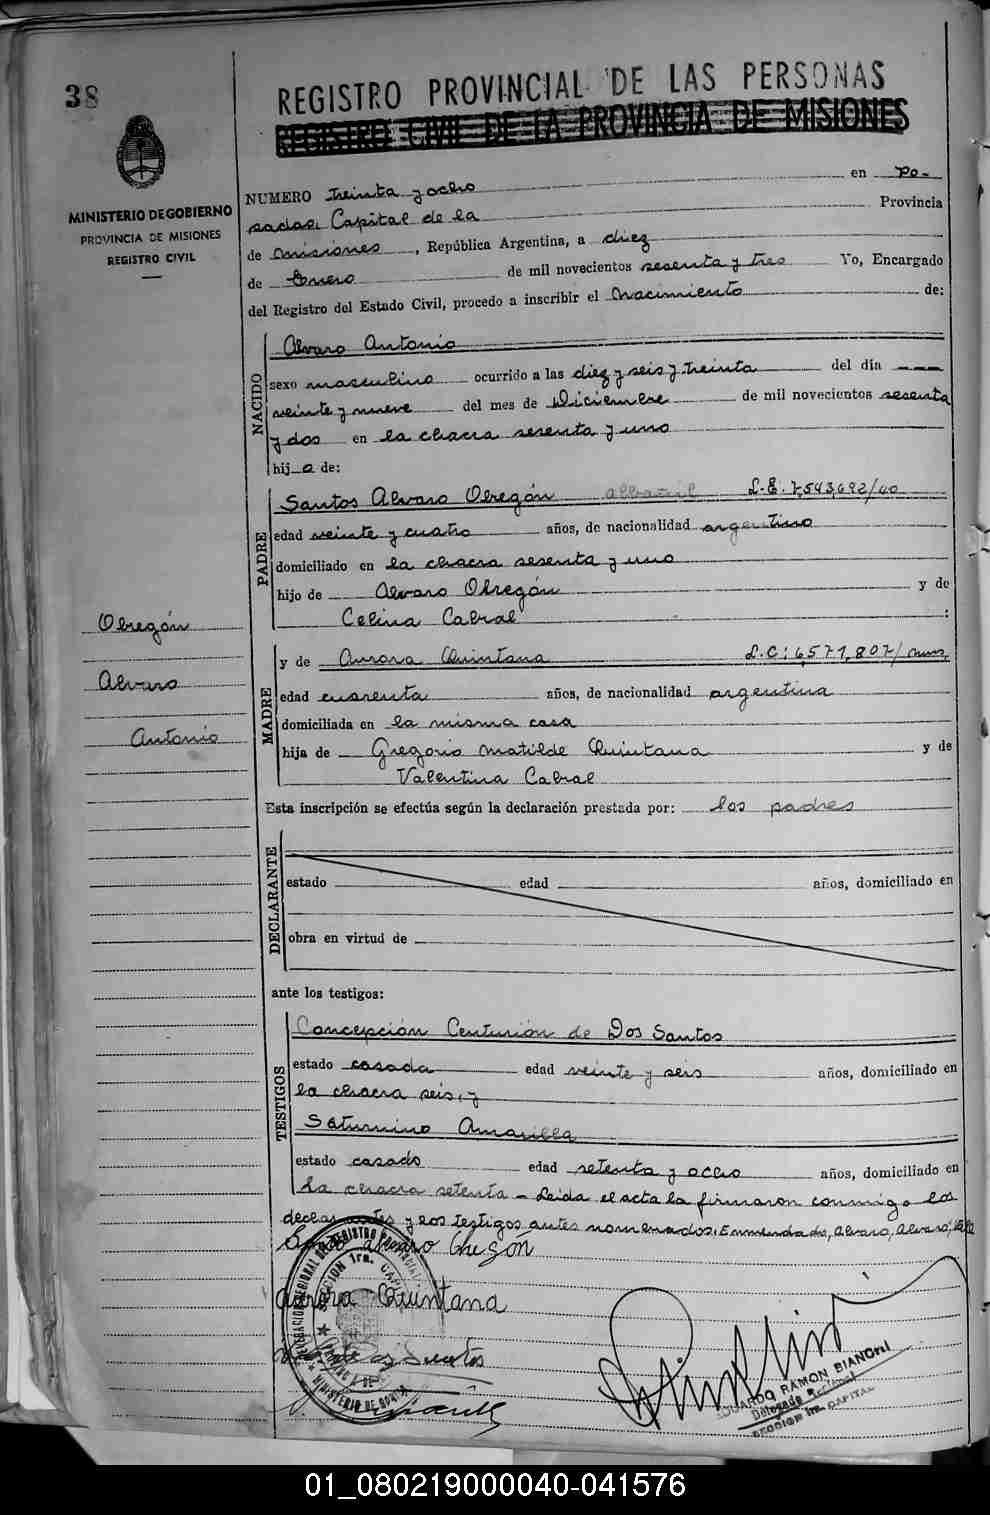 38
REGISTRO PROVINCIAL DE LAS PERSONAS
REGISTRO CIVIL DE LA PROVINCIA DE MISIONES
MINISTERIO DE GOBIERNO
PROVINCIA DE MISIONES
REGISTRO CIVIL
NUMERO treinta y ocho en Po-
sadas, Capital de la Provincia
de Misiones, República Argentina, a diez
de Enero de mil novecientos sesenta y tres Yo, Encargado
del Registro del Estado Civil, procedo a inscribir el Nacimiento de:
NACIDO
Alvaro Antonio
sexo masculino ocurrido a las diez y seis y treinta del día
veinte y nueve del mes de Diciembre de mil novecientos sesenta
y dos en la chacra sesenta y uno
hij o de:
PADRE
Santos Alvaro Obregón albañil L.E. 7,543,692/40
edad veinte y cuatro años, de nacionalidad argentino
domiciliado en la chacra sesenta y uno
hijo de Alvaro Obregón y de
Celina Cabral :
Obregón
Alvaro
Antonio
MADRE
y de Aurora Quintana L.C: 6,571,807/
edad cuarenta años, de nacionalidad argentina
domiciliada en la misma casa
hija de Gregorio Matilde Quintana y de
Valentina Cabral
Esta inscripción se efectúa según la declaración prestada por: los padres
DECLARANTE
estado edad años, domiciliado en
obra en virtud de
ante los testigos:
TESTIGOS
Concepción Centurión de Dos Santos
estado casada edad veinte y seis años, domiciliado en
la chacra seis, y
Saturnino Amarilla
estado casado edad setenta y ocho años, domiciliado en
la chacra setenta - Leida el acta la firmaron conmigo los
declarantes y los testigos antes nombrados. Enmendado, Alvaro, Alvaro,
Alvaro Obregón
Aurora Quintana
EDUARDO RAMON BIANCHI
Delegado
SECCION 1ra. CAPITAL
01_080219000040-041576